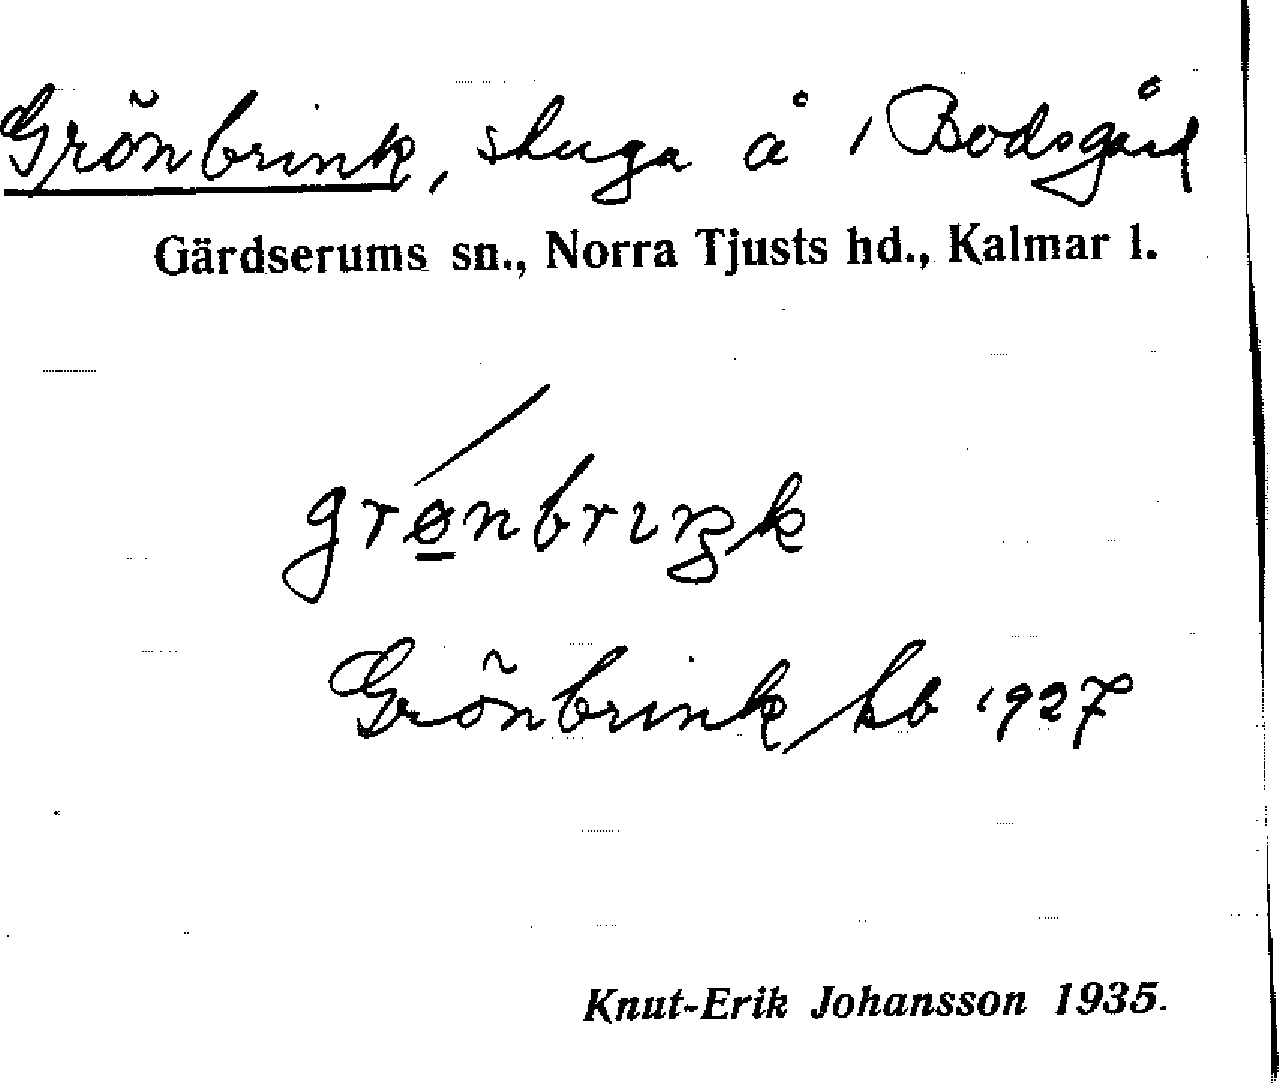 Grönbrink, stuga å 1 Bodsgård
Gärdserums sn., Norra Tjusts hd., Kalmar l.
grø̲nbrɩŋk
Grönbrink hb 1927
Knut-Erik Johansson 1935.